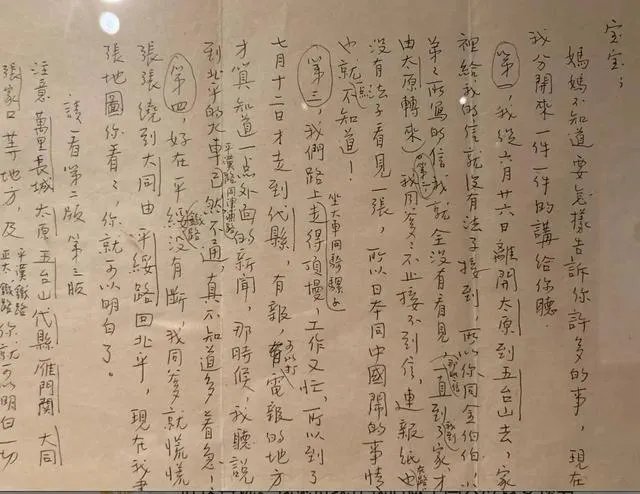 宝宝;
媽媽不知道要怎樣告訴你許多的事,現在
我分開來一件一件的講給你聽.
第一,我從六月廿六日離開太原到五台山去,家
裡給我的信就沒有法子接到,所以你同金伯伯,小
弟弟所寫的信我就全沒有看見,(那些信一直到了家,我到才
由太原轉來)
第二 我同爹爹不止接不到信,連報紙也在路上
沒有法子看見一張,所以日本同中國鬧的事情
也就一點不知道!
第三,我們路上坐大車同騎騾子走得頂慢,工作又忙,所以到了
七月十二日才走到代縣,有報,可以打電報的地方
才算知道一点外面的新聞,那時候,我聽說
到北平的火車平漢路同津浦路已然不通,真不知道多着急!
第四,好在平綏鐵路沒有斷,我同爹爹就慌慌
張張繞到大同由平綏路回北平,現在我畫
張地圖你看看,你就可以明白了。
請看第二版 第三版
注意萬里長城 太原 五台山 代縣 雁門關 大同
張家口等地方,及平漢鐵路 正太鐵路 你就可以明白一切